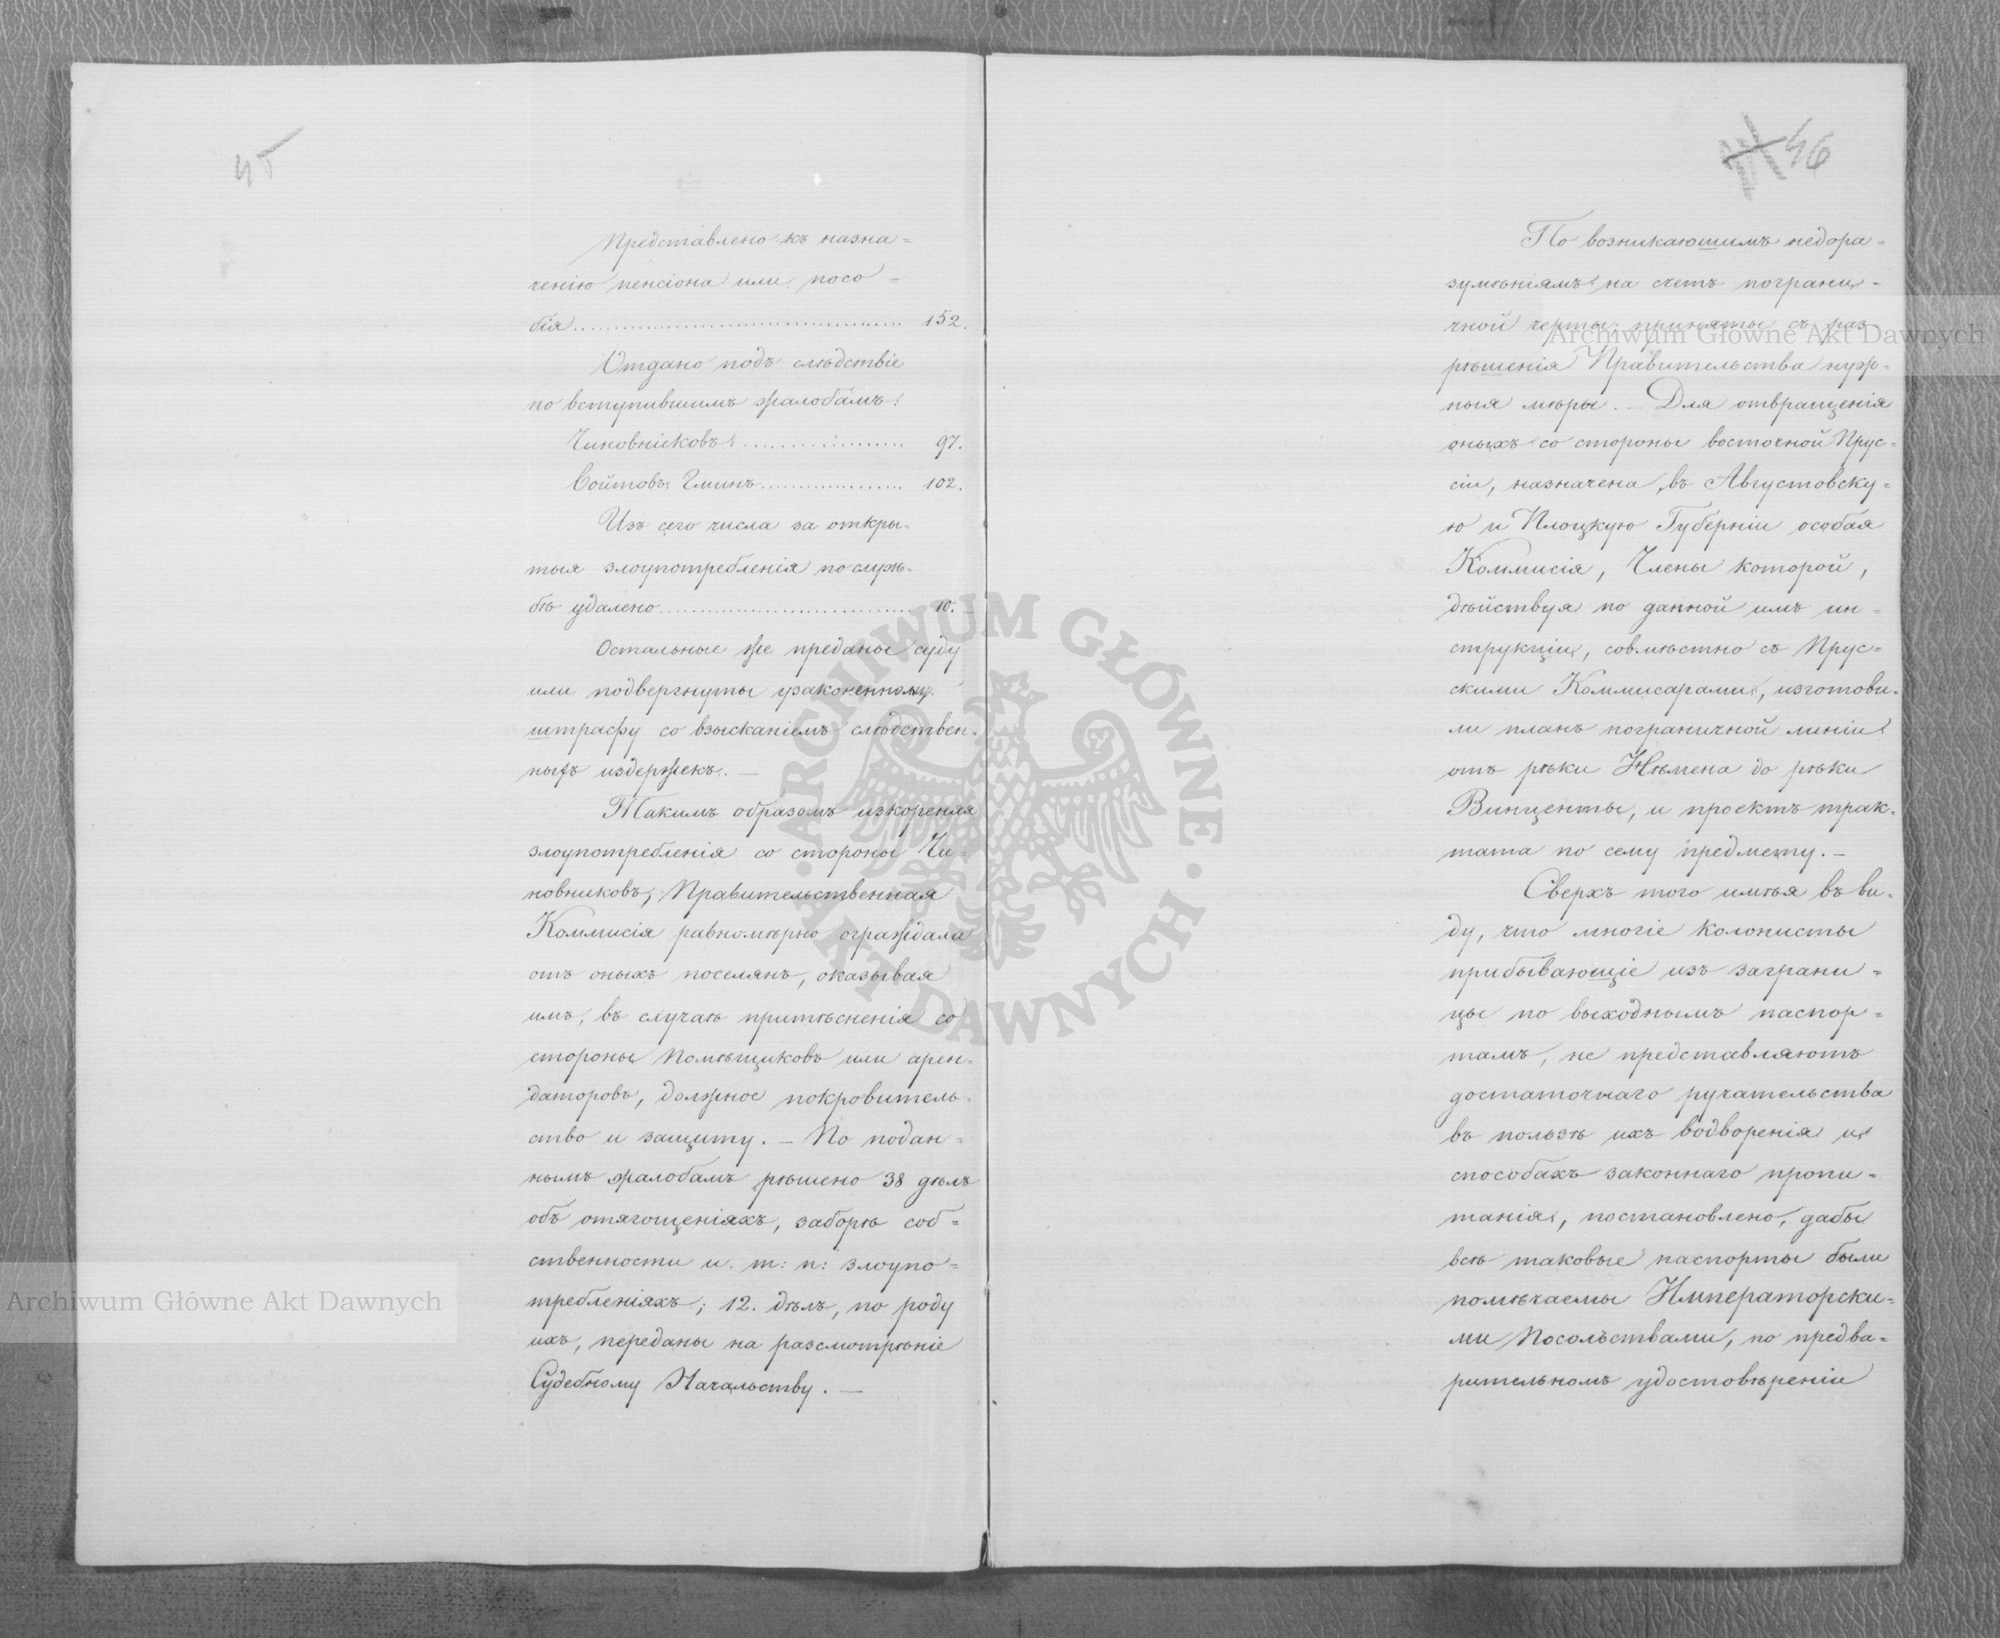 45
Представлено къ назна=
ченію пенсіона или посо=
бія 152.
Отдано подъ слѣдствіе
по вступившимъ жалобамъ:
Чиновніковъ 97.
Войтовъ Гминъ 102.
Изъ сего числа за откры=
тыя злоупотребленія по служ=
бѣ удалено 10.
Остальные же преданы суду
или подвергнуты узаконенному
штрафу со взысканіемъ слѣдствен=
ныхъ издержекъ. —
Такимъ образомъ изкореняя
злоупотребленія со стороны Чи=
новниковъ, Правительственная
Коммисія равномѣрно ограждала
отъ оныхъ поселянъ, оказывая
имъ, въ случаѣ притѣсненія со
стороны Помѣщиковъ или арен=
даторовъ, должное покровитель=
ство и защиту. — По подан=
нымъ жалобамъ рѣшено 38 дѣлъ
объ отягощеніяхъ, заборѣ соб=
ственности и. т: п: злоупо=
требленіяхъ; 12. дѣлъ, по роду
ихъ, переданы на разсмотрѣніе
Судебному Начальству. —
46
По возникающимъ недора=
зумѣніямъ на счетъ погранич=
ной черты, приняты съ раз
рѣшенія Правительства нуж=
ныя мѣры. — Для отвращенія
оныхъ со стороны восточной Прус=
сіи, назначена въ Августовску=
ю и Плоцкую Губерніи особая
Коммисія, Члены которой,
дѣйствуя по данной имъ ин=
струкціи, совмѣстно съ Прус=
скими Коммисарами, изготови=
ли планъ пограничной линіи
отъ рѣки Нѣмена до рѣки
Винценты, и проектъ трак=
тата по сему предмету. —
Сверхъ того имѣя въ ви=
ду, что многіе колонисты
прибывающіе изъ заграни=
цы по выходнымъ паспор=
тамъ, не представляютъ
достаточнаго ручательства
въ пользѣ ихъ водворенія и
способахъ законнаго пропи=
танія, постановлено, дабы
всѣ таковые паспорты были
помѣчаемы Императорски=
ми Посольствами, по предва=
рительномъ удостовѣреніи
Archiwum Główne Akt Dawnych
Archiwum Główne Akt Dawnych
ARCHIWUM GŁÓWNE · AKT DAWNYCH ·